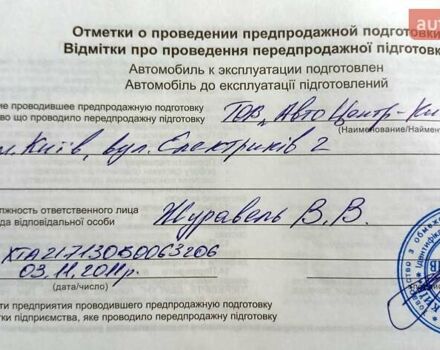 auto
Отметки о проведении предпродажной подготовки
Відмітки про проведення передпродажної підготовк
Автомобиль к эксплуатации подготовлен
Автомобіль до експлуатації підготовлений
ие проводившее предпродажную подготовку
во що проводило передпродажну підготовку
ТОВ „АвтоЦентр-Ки
(Наименование/Наймен
м.Київ, вул.Електриків 2
лжность ответственного лица
да відповідальної особи
Журавель В.В.
XTA217130B0063206
03.11.2011р.
(дата/число)
ти предприятия проводившего предпродажную подготовку
тки підприємства, яке проводило передпродажну підготовку